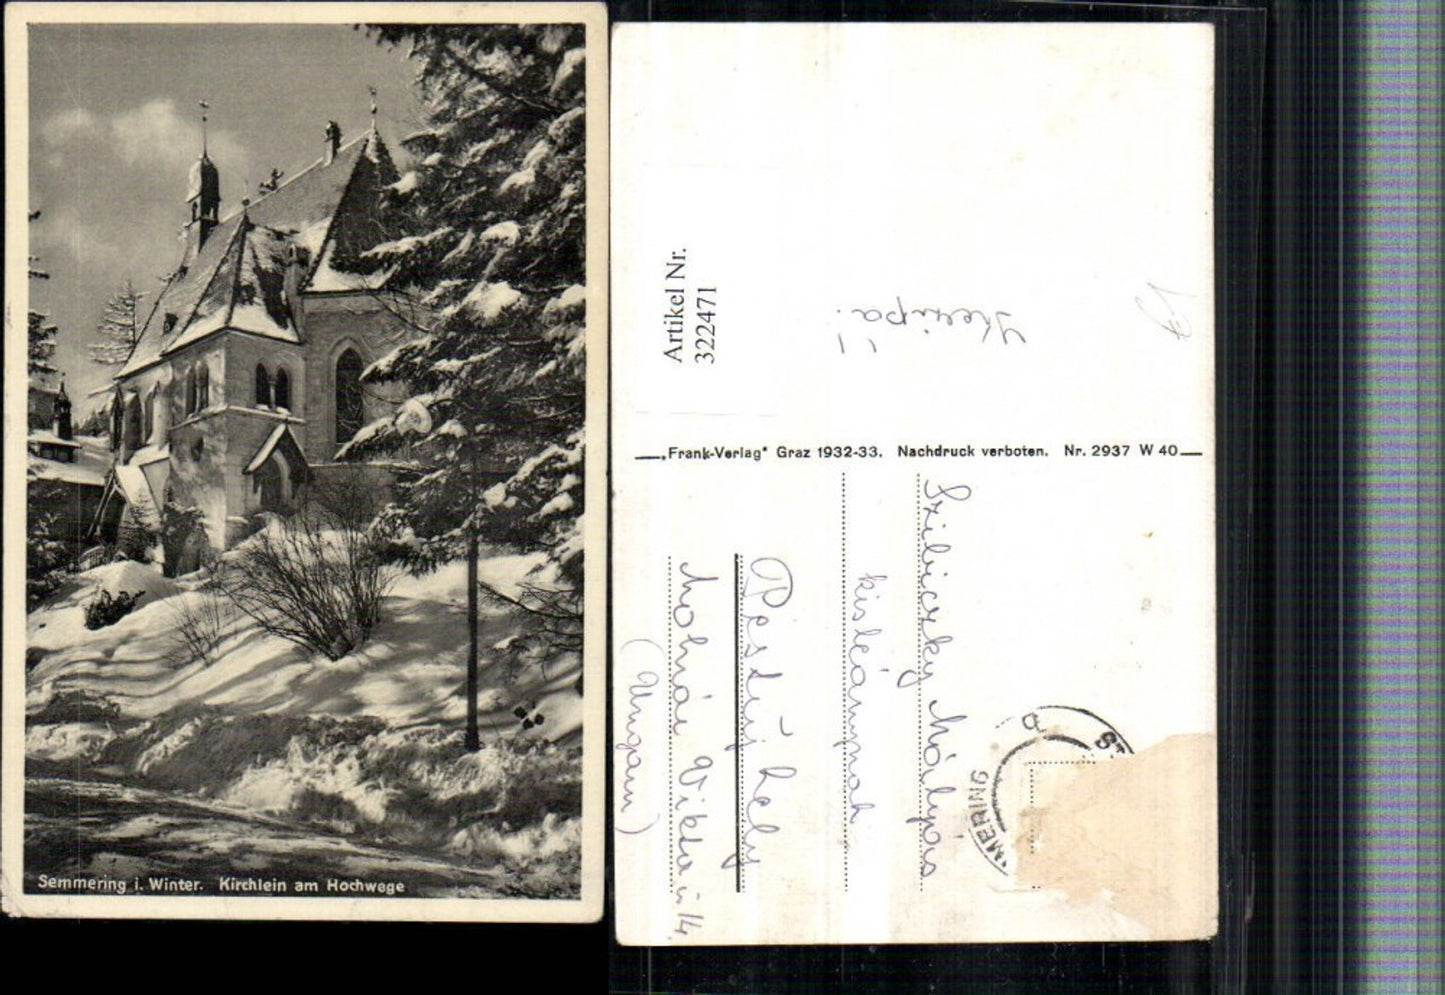 Semmering i. Winter. Kirchlein am Hochwege
Artikel Nr.
322471
„Frank-Verlag" Graz 1932-33. Nachdruck verboten. Nr. 2937 W 40
Mátyás
kisleánynak
Pestújhely
Molnár Viktor u 14
(Ungarn)
MERING